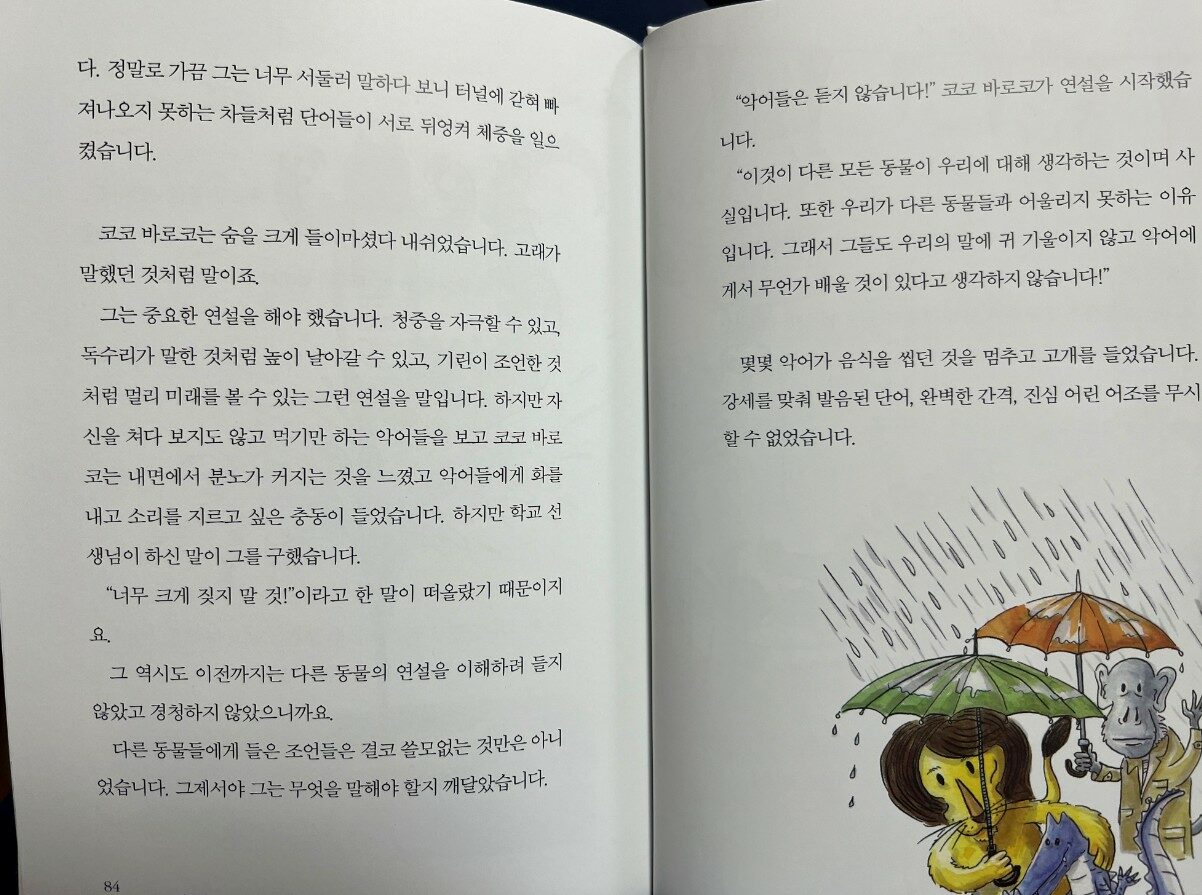 다. 정말로 가끔 그는 너무 서둘러 말하다 보니 터널에 갇혀 빠
져나오지 못하는 차들처럼 단어들이 서로 뒤엉켜 체중을 일으
켰습니다.
코코 바로코는 숨을 크게 들이마셨다 내쉬었습니다. 고래가
말했던 것처럼 말이죠.
그는 중요한 연설을 해야 했습니다. 청중을 자극할 수 있고,
독수리가 말한 것처럼 높이 날아갈 수 있고, 기린이 조언한 것
처럼 멀리 미래를 볼 수 있는 그런 연설을 말입니다. 하지만 자
신을 쳐다 보지도 않고 먹기만 하는 악어들을 보고 코코 바로
코는 내면에서 분노가 커지는 것을 느꼈고 악어들에게 화를
내고 소리를 지르고 싶은 충동이 들었습니다. 하지만 학교 선
생님이 하신 말이 그를 구했습니다.
“너무 크게 짖지 말 것!”이라고 한 말이 떠올랐기 때문이지
요.
그 역시도 이전까지는 다른 동물의 연설을 이해하려 들지
않았고 경청하지 않았으니까요.
다른 동물들에게 들은 조언들은 결코 쓸모없는 것만은 아니
었습니다. 그제서야 그는 무엇을 말해야 할지 깨달았습니다.
84
“악어들은 듣지 않습니다!” 코코 바로코가 연설을 시작했습
니다.
“이것이 다른 모든 동물이 우리에 대해 생각하는 것이며 사
실입니다. 또한 우리가 다른 동물들과 어울리지 못하는 이유
입니다. 그래서 그들도 우리의 말에 귀 기울이지 않고 악어에
게서 무언가 배울 것이 있다고 생각하지 않습니다!”
몇몇 악어가 음식을 씹던 것을 멈추고 고개를 들었습니다.
강세를 맞춰 발음된 단어, 완벽한 간격, 진심 어린 어조를 무시
할 수 없었습니다.